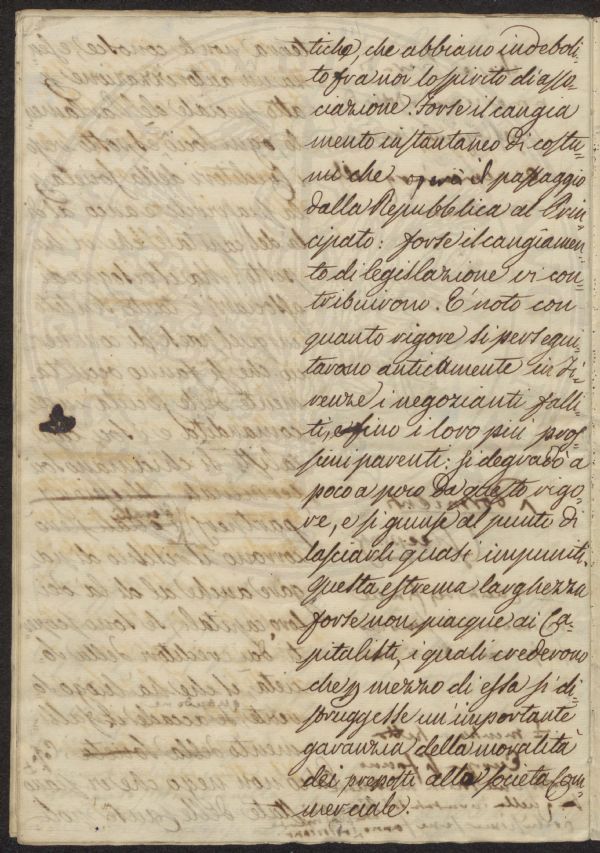 tiche, che abbiano indeboli=
to fra noi lo spirito di asso=
ciazione. Forse il cangia
mento instantaneo di costu=
mi che il passaggio
dalla Repubblica al Prin=
cipato: forse il cangiamen=
to di legislazione vi con=
tribuirono. È noto con
quanto rigore si persegui=
tarono anticamente in Fi=
renze i negozianti falli=
ti, e fino i loro più pros=
simi parenti: si degradò a
poco a poco da questo rigo=
re, e si giunse al punto di
lasciarli quasi impuniti.
Questa estrema larghezza
forse non piacque ai Ca=
pitalisti, i quali crederono
che p mezzo di essa si di=
struggesse un'importante
garanzia della moralità
dei preposti alla società Com=
merciale.